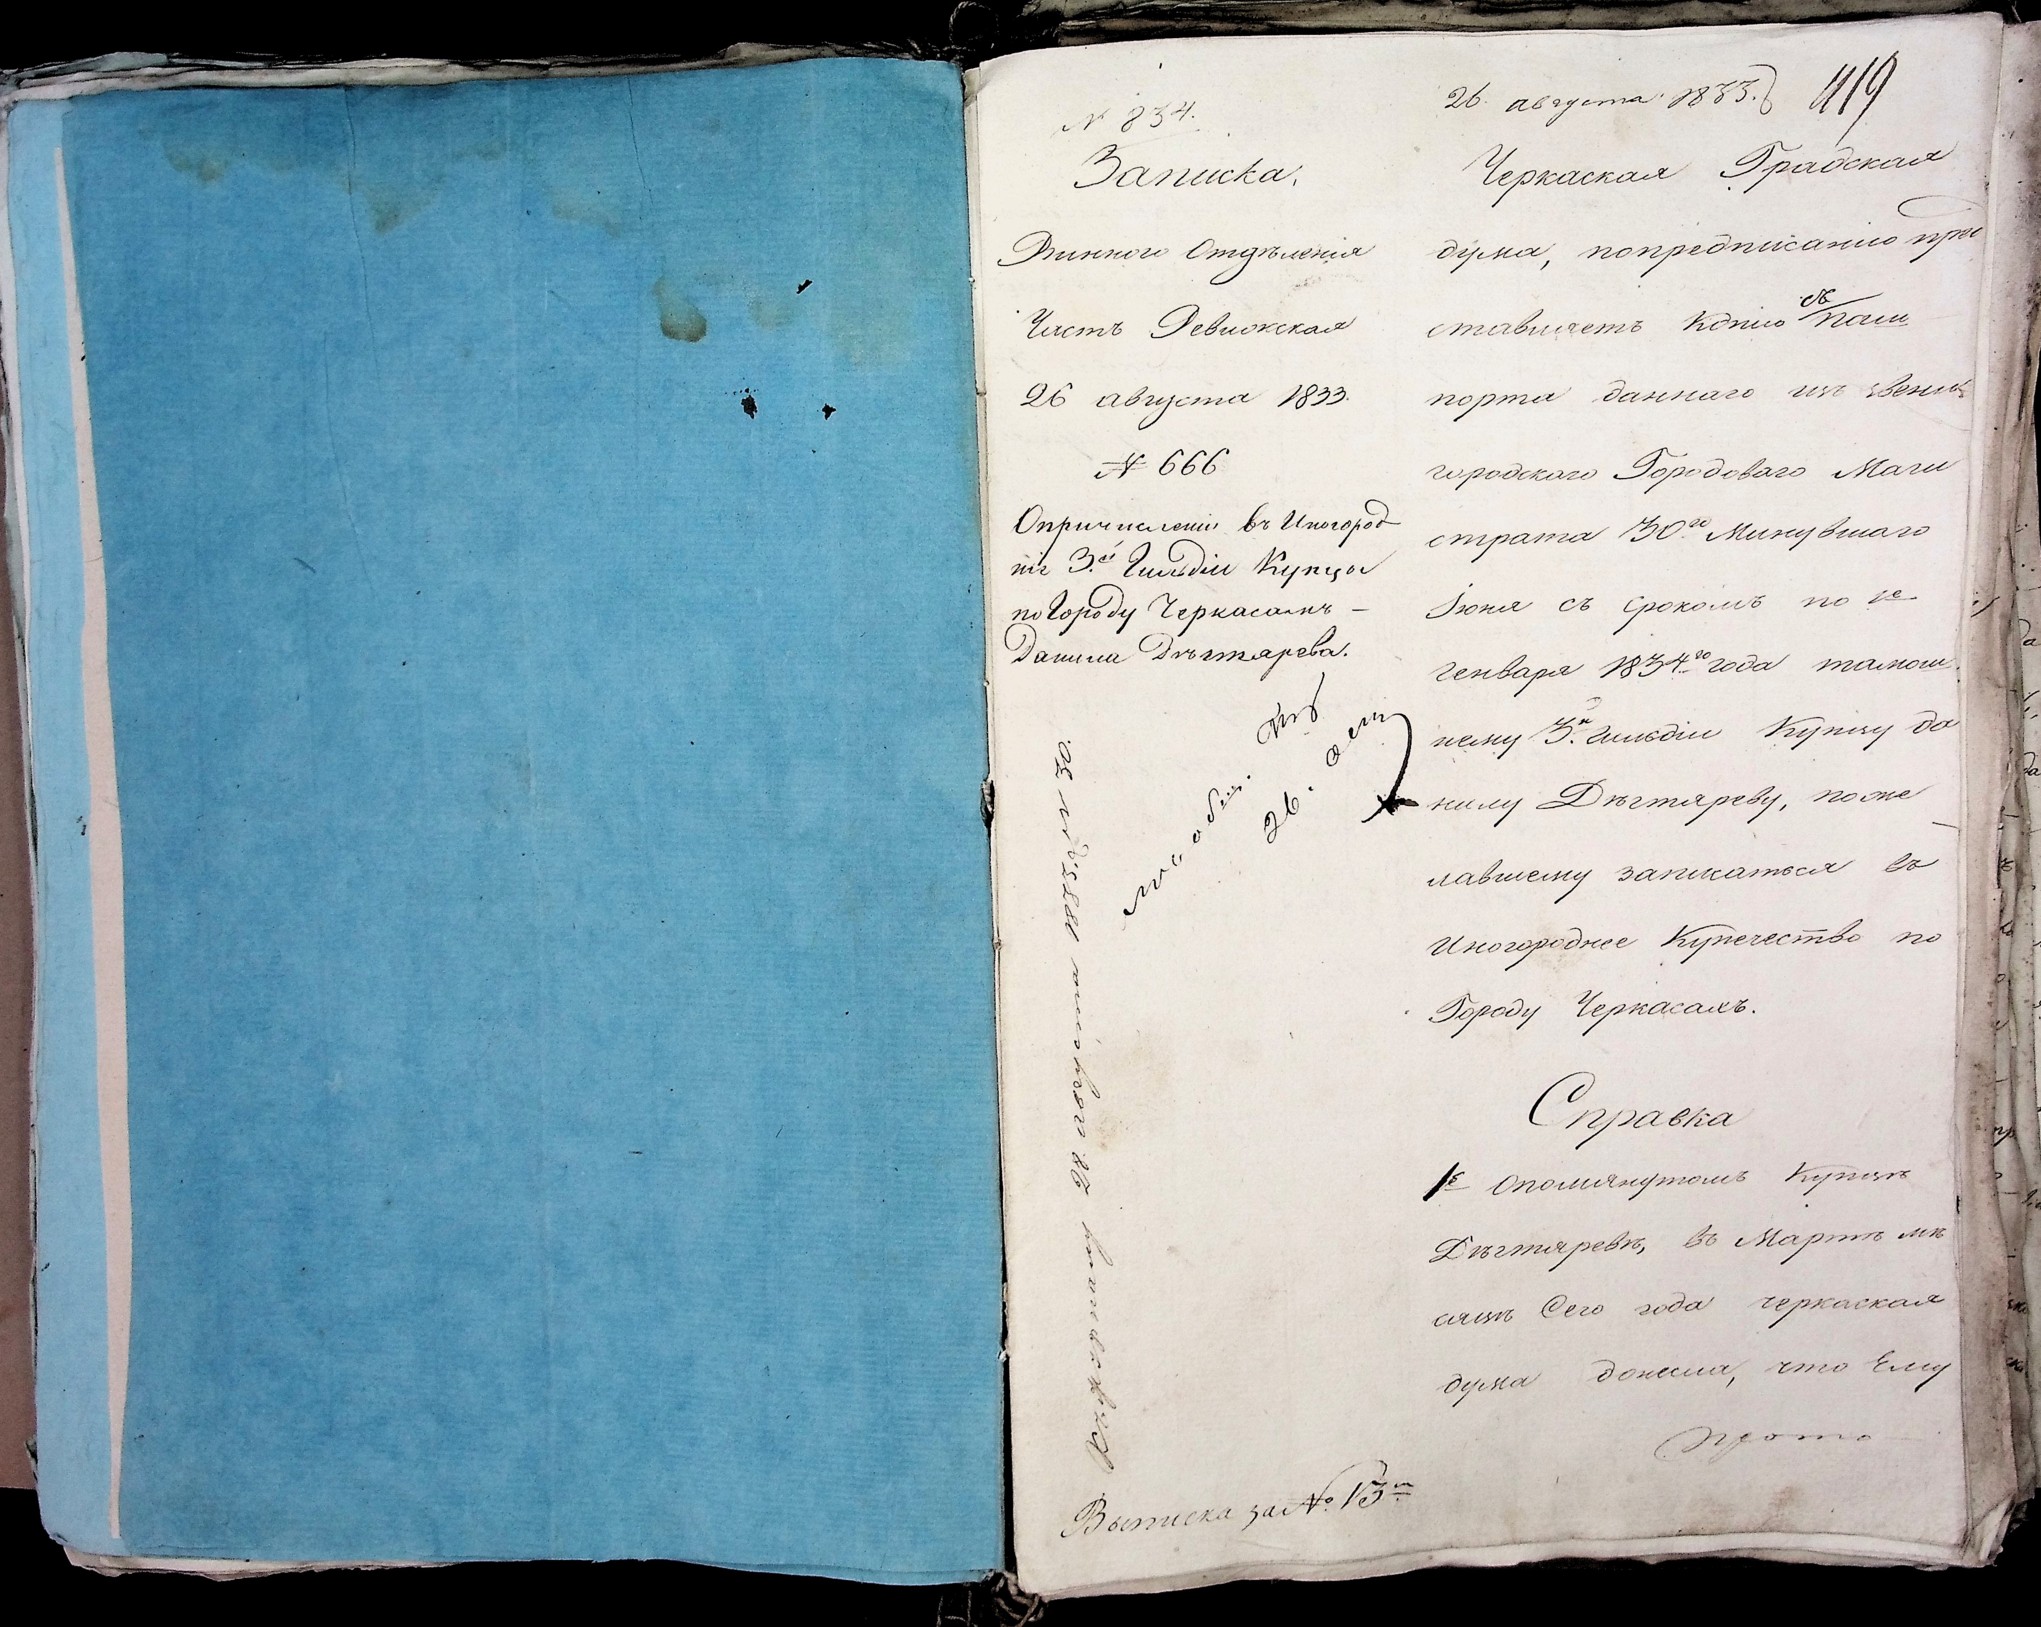 № 834.
Записка.
Виннаго Отдѣленія
Часть Ревизская
26 августа 1833.
№ 666
О причисленіи въ Иногород
ніе 3.й Гильдіи Купцы
по Городу Черкасамъ —
Данила Дѣгтярева.
26.
28 августа 1833 г. № 20.
Выписка за № 13м
26. августа 1833. 419
Черкаская Градская
дума, по предписанію пре
ставляетъ Копію съ паш
порта даннаго изъ Звени
городскаго Городоваго Маги
страта 30го Минувшаго
Іюня съ срокомъ по 1е
Генваря 1834го года тамош
нему 3.й Гильдіи Купцу Да
нилу Дѣгтяреву, поже
лавшему записаться въ
Иногороднее Купечество по
Городу Черкасамъ.
Справка
1е О помянутомъ Купцѣ
Дѣгтяревѣ, въ Мартѣ мѣ
сяцѣ Сего года Черкаская
дума донесла, что Ему